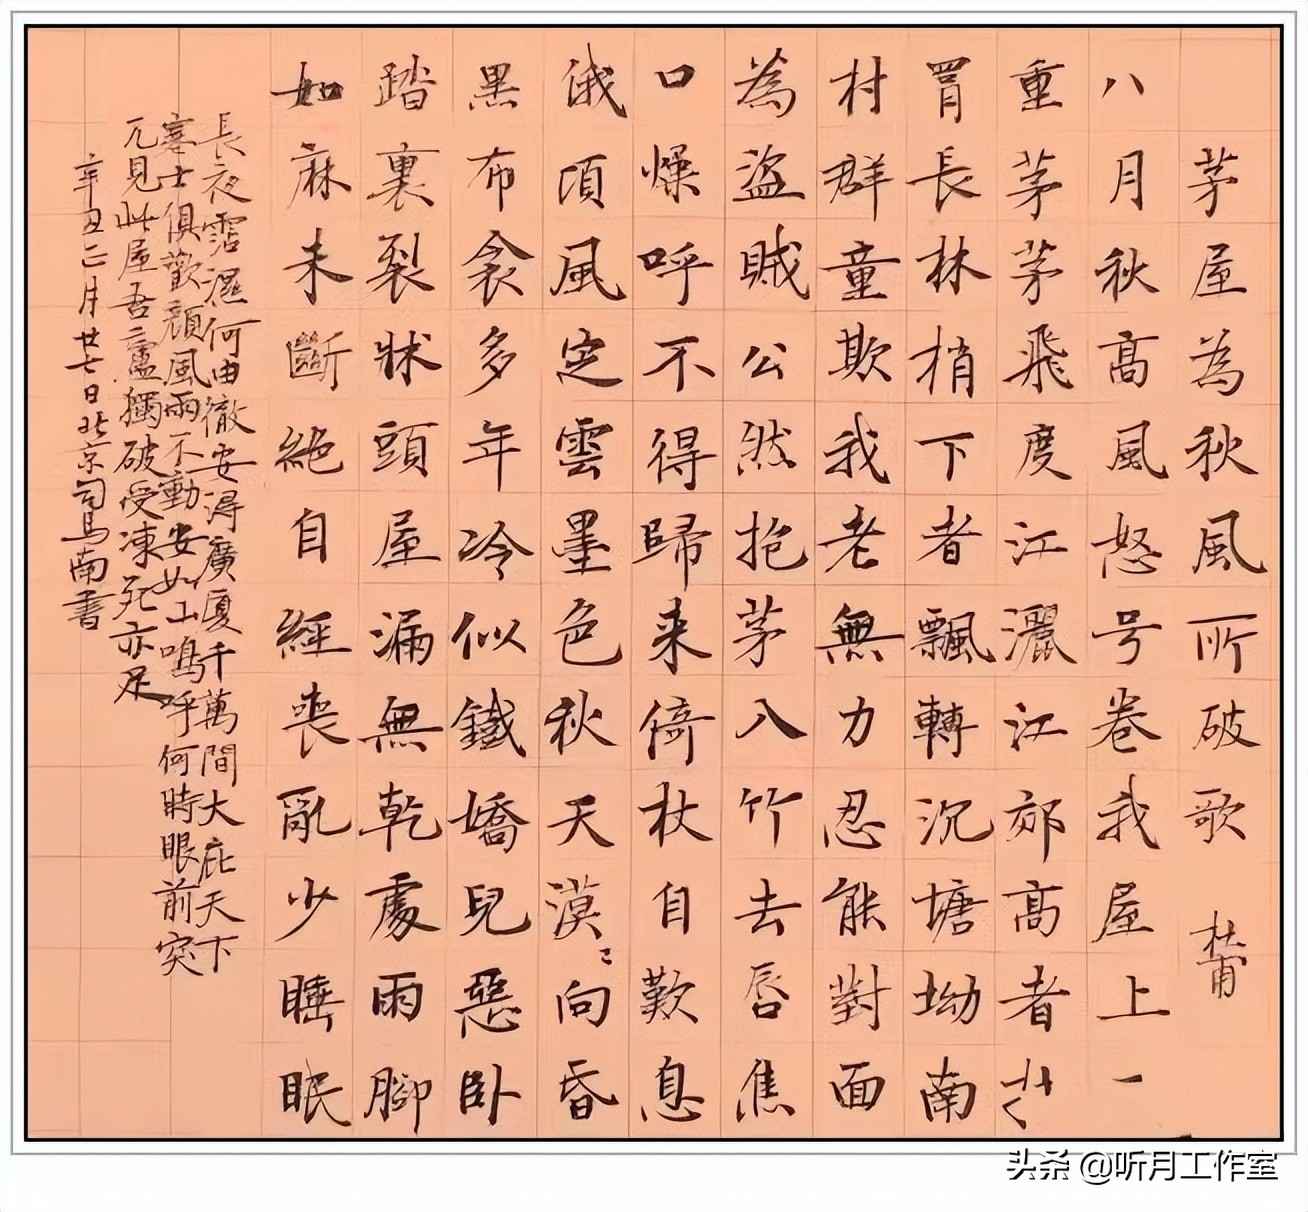 茅屋為秋風所破歌 杜甫
八月秋高風怒号卷我屋上一
重茅茅飛度江灑江郊高者
罥長林梢下者飄轉沉塘坳南
村群童欺我老無力忍能對面
為盜賊公然抱茅入竹去唇焦
口燥呼不得歸来倚杖自歎息
俄頃風定雲墨色秋天漠〻向昏
黑布衾多年冷似鐵嬌兒惡卧
踏裏裂牀頭屋漏無乾處雨腳
如麻未斷絶自經喪亂少睡眠
長夜霑濕何由徹安得廣厦千萬間大庇天下
寒士俱歡顏風雨不動安如山嗚呼何時眼前突
兀見此屋吾廬獨破受凍死亦足
辛丑二月廿七日北京司馬南書
头条 @听月工作室